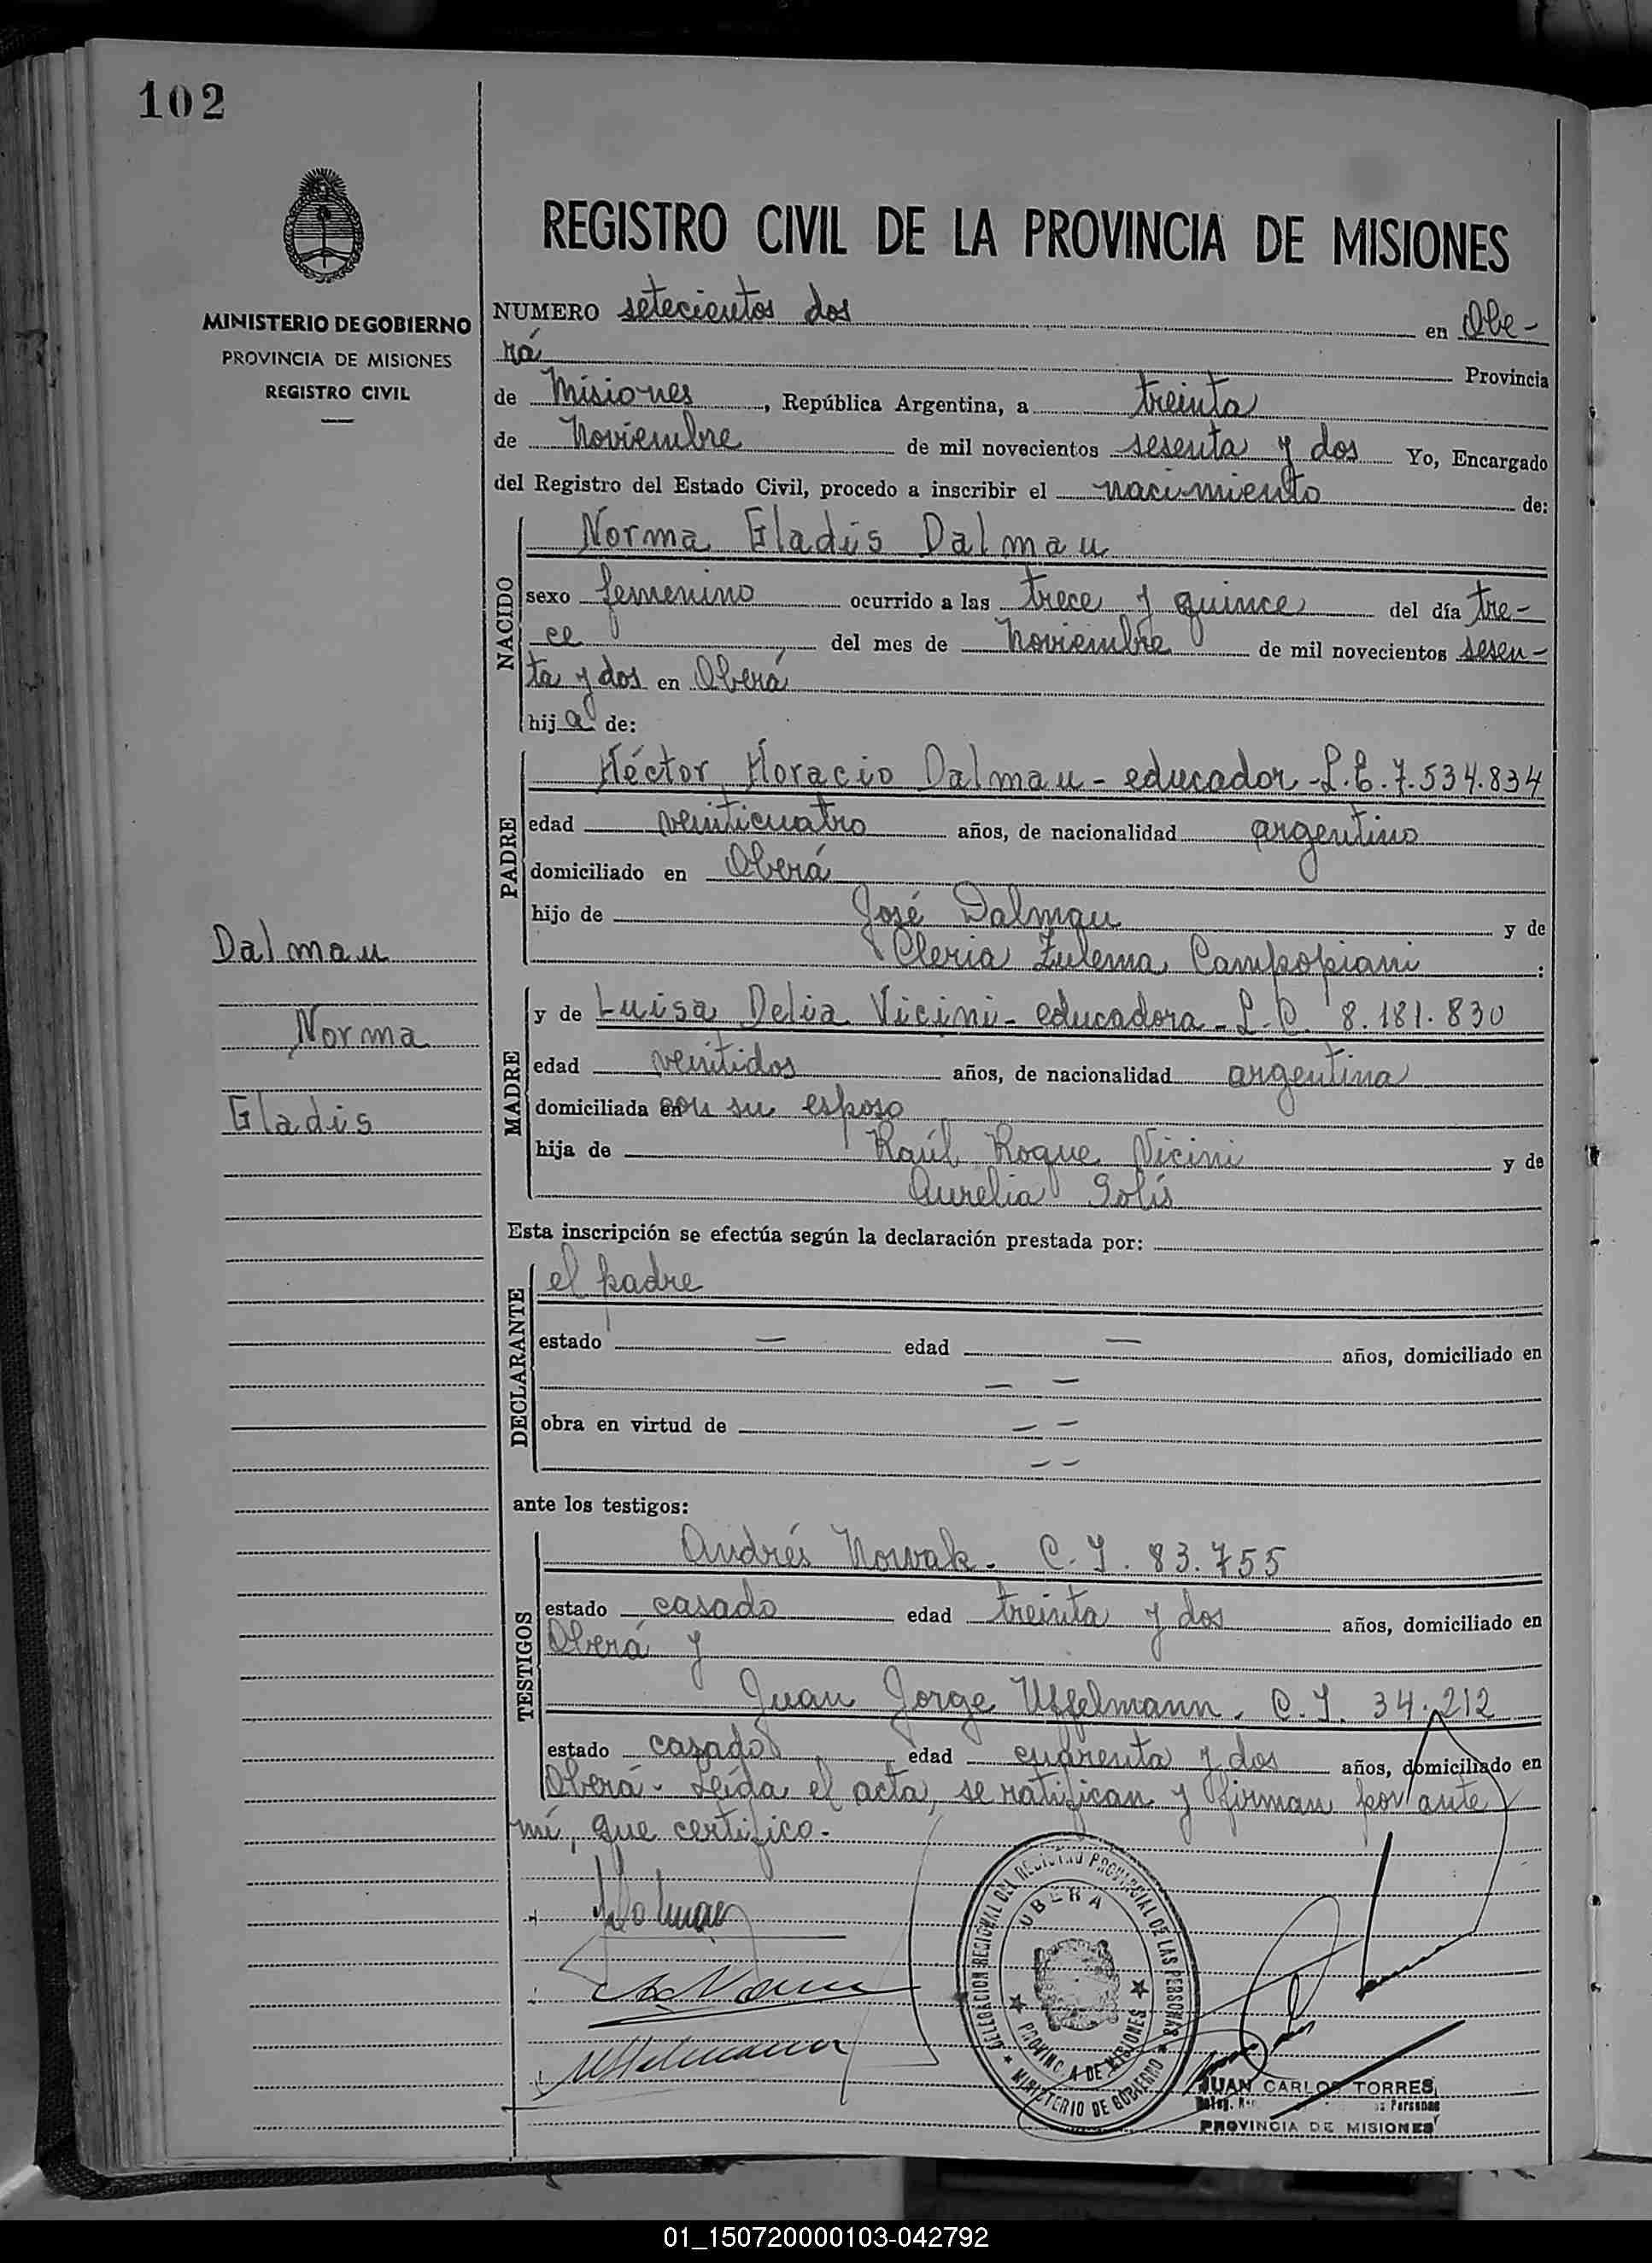 102
REGISTRO CIVIL DE LA PROVINCIA DE MISIONES
MINISTERIO DE GOBIERNO
PROVINCIA DE MISIONES
REGISTRO CIVIL
NUMERO setecientos dos en Obe-
rá Provincia
de Misiones, República Argentina, a treinta
de Noviembre de mil novecientos sesenta y dos Yo, Encargado
del Registro del Estado Civil, procedo a inscribir el nacimiento de:
NACIDO
Norma Gladis Dalmau
sexo femenino ocurrido a las trece y quince del día tre-
ce del mes de Noviembre de mil novecientos sesen-
ta y dos en Oberá
hija de:
PADRE
Héctor Horacio Dalmau - educador - L.E. 7.534.834
edad veinticuatro años, de nacionalidad argentino
domiciliado en Oberá
hijo de José Dalmau y de
Cleria Zulema Campopiani :
Dalmau
Norma
Gladis
MADRE
y de Luisa Delia Vicini - educadora - L.C. 8.181.830
edad veintidos años, de nacionalidad argentina
domiciliada con su esposo
hija de Raúl Roque Vicini y de
Aurelia Solís
Esta inscripción se efectúa según la declaración prestada por:
DECLARANTE
el padre
estado — edad — años, domiciliado en
— —
obra en virtud de — —
— —
ante los testigos:
TESTIGOS
Andrés Nowak. C.I. 83.755
estado casado edad treinta y dos años, domiciliado en
Oberá y
Juan Jorge Uffelmann. C.I. 34.212
estado casado edad cuarenta y dos años, domiciliado en
Oberá. Leída el acta, se ratifican y firman por ante
mí, que certifico.-
DELEGACION REGIONAL DEL REGISTRO PROVINCIAL DE LAS PERSONAS
OBERA
PROVINCIA DE MISIONES
MINISTERIO DE GOBIERNO
JUAN CARLOS TORRES
PROVINCIA DE MISIONES
01_150720000103-042792